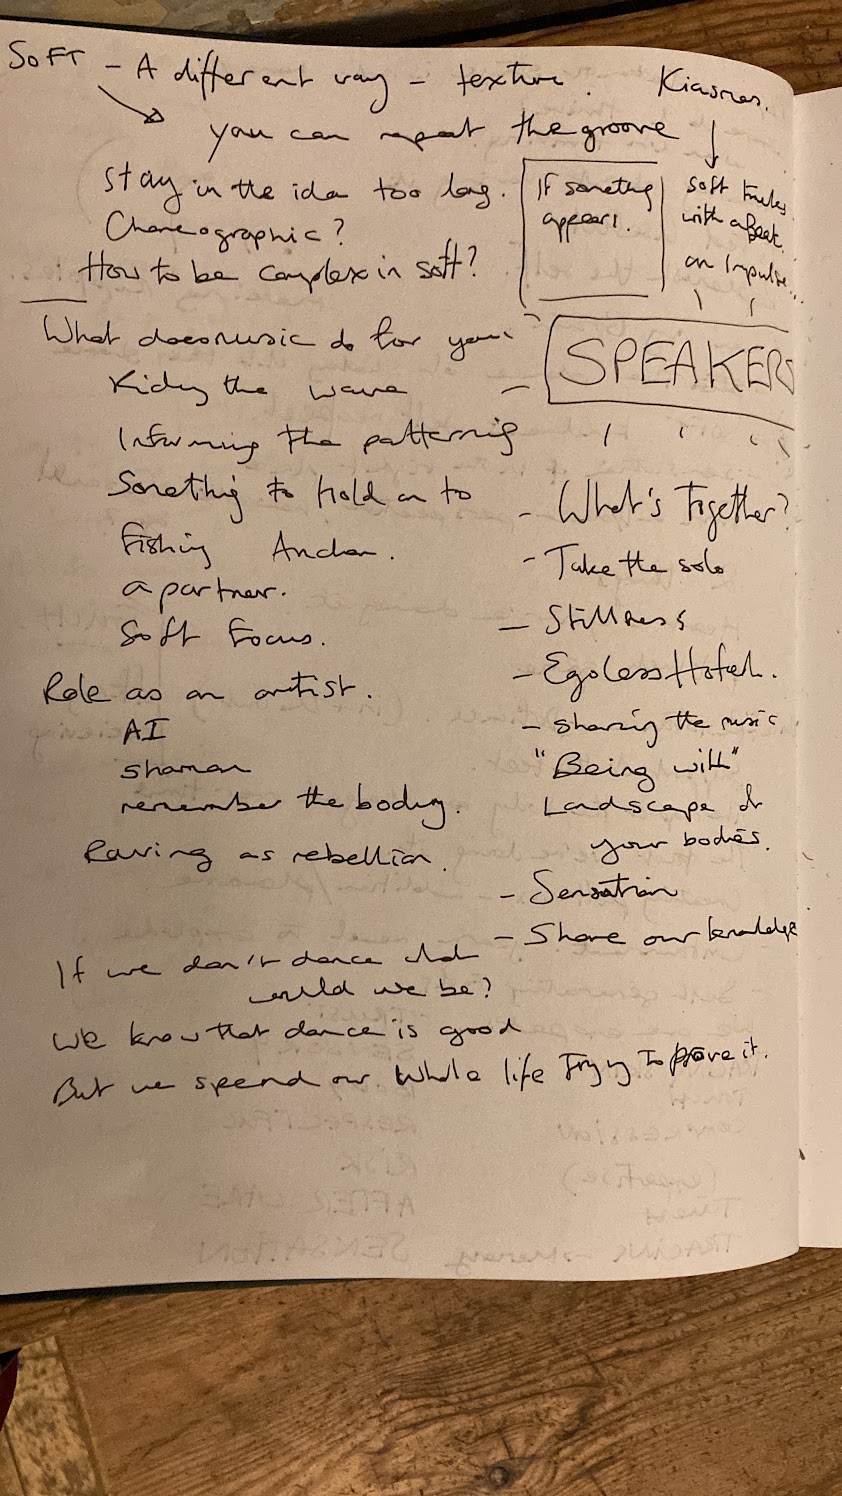 SOFT – A different way – texture.
Kiasmos.
you can repeat the groove
Stay in the idea too long.
Choreographic?
How to be complex in soft?
If something
appears.
soft tracks
with a Beat
an Impulse...
What does music do for you
SPEAKERS
Riding the wave
Informing the patterning
Something to hold on to
Fishing Anchor.
a partner.
Soft Focus.
Role as an artist.
AI
shaman
remember the body.
Raving as rebellion.
- What's Together?
- Take the solo
- Stillness
- Egoless Hotel.
- sharing the music
"Being with"
Landscape of
your bodies.
- Sensation
- Share our knowledge
If we don't dance what
would we be?
We know that dance is good
But we spend our whole life Trying To prove it.